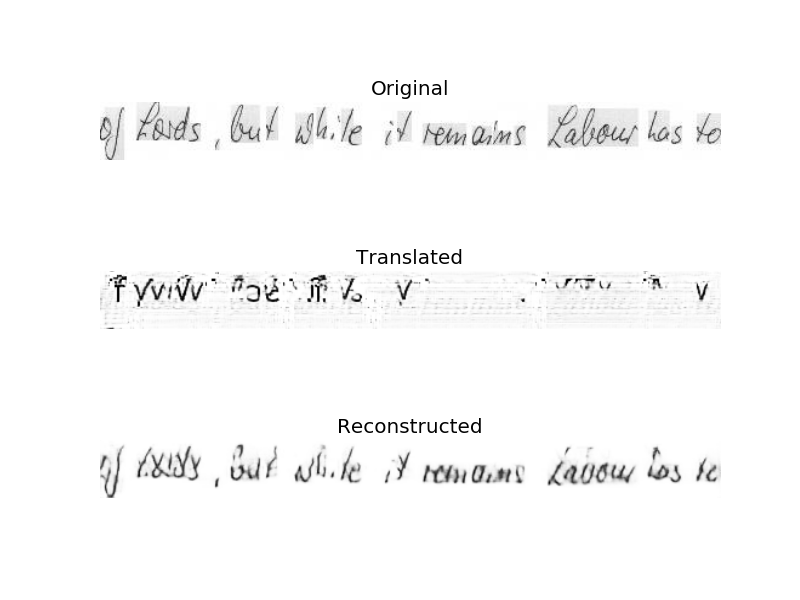 Original
of Lords, but while it remains Labour has to
Translated
Reconstructed
of Lords, but while it remains Labour has to